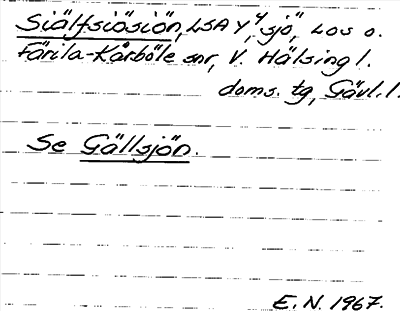 Siälfsiösiön, LSA Y 4, "sjö", Los o.
Färila-Kårböle snr, V. Hälsingl.
doms. tg, Gävl. l.
Se Gällsjön.
E. N. 1967.